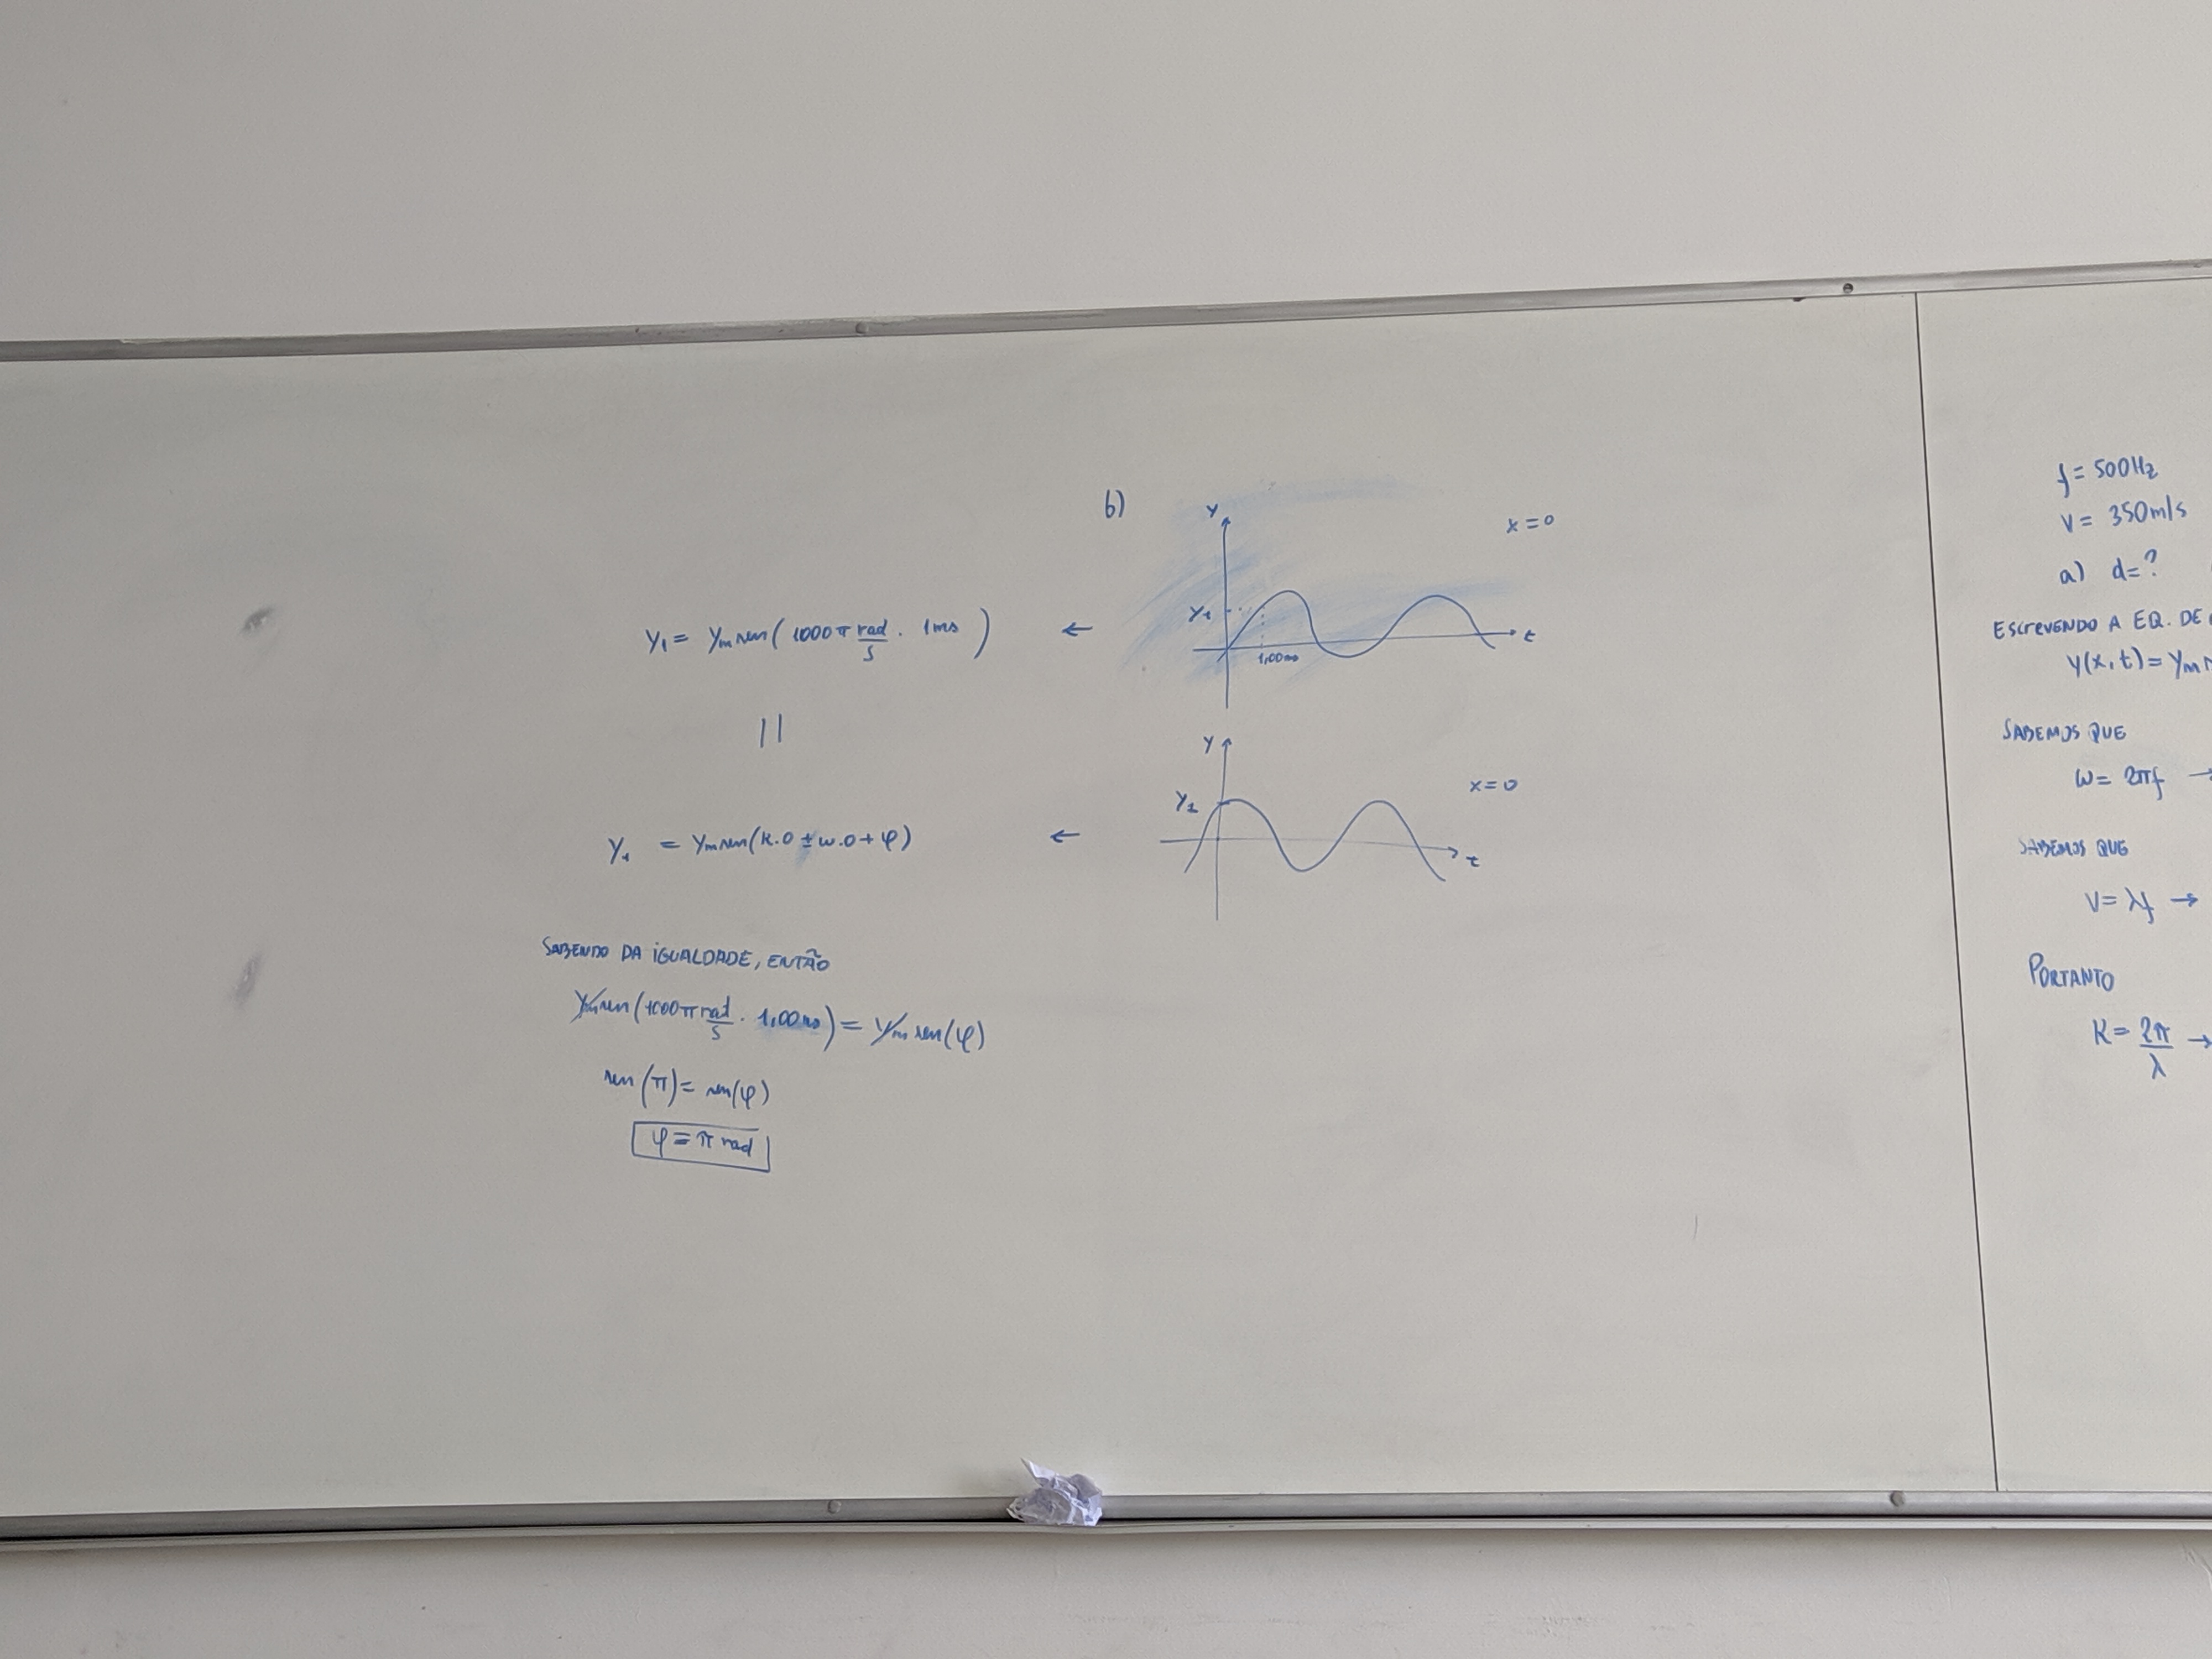 b)
y
x=0
y₁
1,00ms
t
y₁ = yₘ sen(1000π rad/s . 1ms) ←
||
y
x=0
y₁
t
y₁ = yₘ sen(k.0 ± w.0 + φ) ←
SABENDO DA IGUALDADE, ENTÃO
yₘ sen(1000π rad/s . 1,00ms) = yₘ sen(φ)
sen(π) = sen(φ)
φ = π rad
f = 500Hz
v = 350m/s
a) d=?
ESCREVENDO A EQ. DE
y(x,t) = yₘ
SABEMOS QUE
ω = 2πf →
SABEMOS QUE
v = λf →
PORTANTO
K = 2π/λ →